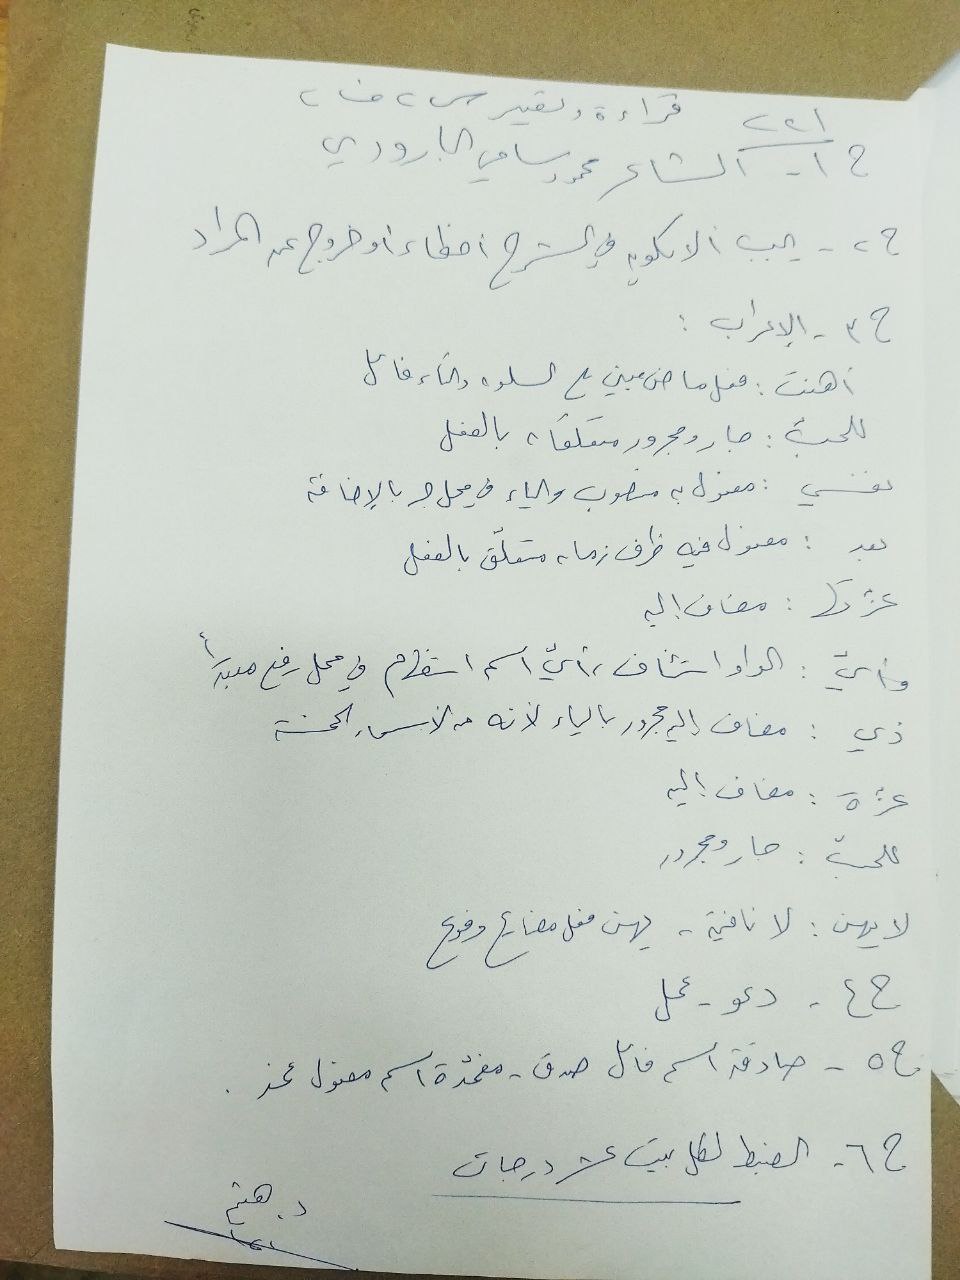 قراءة وتعبير س٢ ف٢
٢٢١
ج١- الشاعر محمود سامي البارودي
ج٢- يجب ألا يكون في الشرح أخطاء أو خروج عن المراد
ج٣- الإعراب :
أهنت : فعل ماض مبني على السكون والتاء فاعل
للحبّ : جار ومجرور متعلقان بالفعل
نفسي : مفعول به منصوب والياء في محل جر بالإضافة
بعد : مفعول فيه ظرف زمان متعلّق بالفعل
عزّتها : مضاف إليه
وأيّ : الواو استئناف، أيّ اسم استفهام في محل رفع مبتدأ
ذي : مضاف إليه مجرور بالياء لأنه من الأسماء الخمسة
عزّة : مضاف إليه
للحبّ : جار ومجرور
لا يهن : لا نافية - يهن فعل مضارع مرفوع
ج٤- دعو - عمل
ج٥- صادقة اسم فاعل صدق - اسم مفعول
ج٦- الضبط لكل بيت عشر درجات
د. هيثم